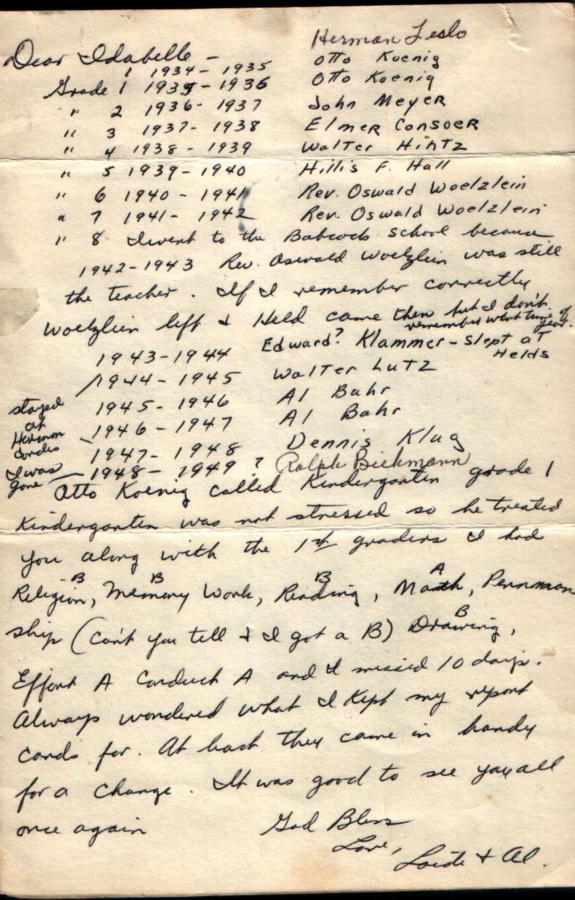 Herman Leslo
Dear Idabelle -
1 1934 - 1935 Otto Koenig
Grade 1 1935 - 1936 Otto Koenig
" 2 1936 - 1937 John Meyer
" 3 1937 - 1938 Elmer Consoer
" 4 1938 - 1939 Walter Hintz
" 5 1939 - 1940 Hillis F. Hall
" 6 1940 - 1941 Rev. Oswald Woelzlein
" 7 1941 - 1942 Rev. Oswald Woelzlein
" 8 I went to the Babcock school because
1942-1943 Rev. Oswald Woelzlein was still
the teacher. If I remember correctly
Woelzlien left & Held came then but I don't
remember what time of year.
1943-1944 Edward? Klammer - slept at Helds
1944 - 1945 Walter Lutz
stayed at Herman 1945 - 1946 Al Bahr
1946 - 1947 Al Bahr
1947 - 1948 Dennis Klug
I was gone - 1948 - 1949 ? Ralph Biekmann
Otto Koenig called Kindergarten grade 1
Kindergarten was not stressed so he treated
you along with the 1st graders I had
Religion, -B Memory Work, B Reading, B Math, A Penman
ship (Can't you tell & I got a B) Drawing, B
Effort A Conduct A and I missed 10 days.
Always wondered what I kept my report
cards for. At last they came in handy
for a change. It was good to see you all
once again God Bless
Love,
& Al.